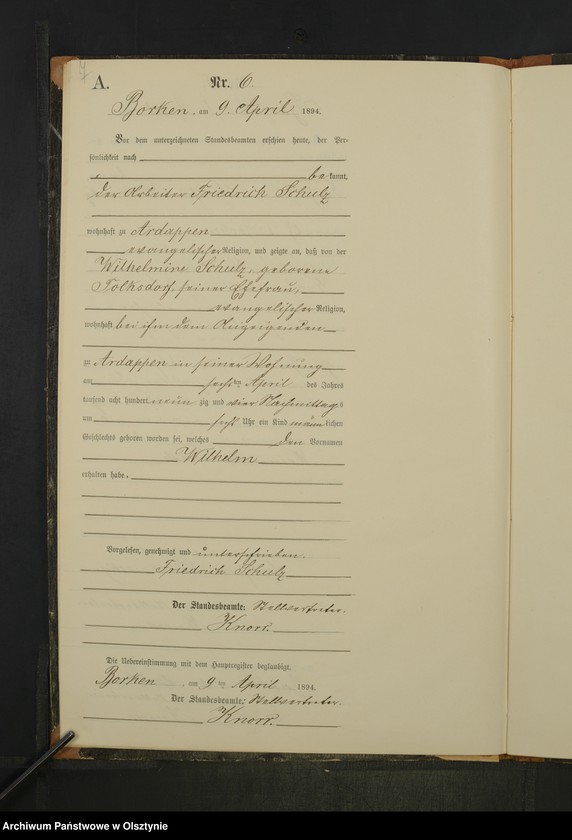 A. Nr. 6.
Borken, am 9. April 1894.
Vor dem unterzeichneten Standesbeamten erschien heute, der Per-
sönlichkeit nach
be kannt,
der Arbeiter Friedrich Schulz
wohnhaft zu Ardappen
evangelischer Religion, und zeigte an, daß von der
Wilhelmine Schulz, geborene
Tolksdorf, seiner Ehefrau,
evangelischer Religion,
wohnhaft bei ihm dem Anzeigenden
zu Ardappen in seiner Wohnung
am sechsten April des Jahres
tausend acht hundert neun zig und vier Nachmittags
um sechs Uhr ein Kind männlichen
Geschlechts geboren worden sei, welches den Vornamen
Wilhelm
erhalten habe.
Vorgelesen, genehmigt und unterschrieben.
Friedrich Schulz
Der Standesbeamte: Stellvertreter.
Knorr.
Die Uebereinstimmung mit dem Hauptregister beglaubigt.
Borken, am 9 ten April 1894.
Der Standesbeamte: Stellvertreter.
Knorr.
Archiwum Państwowe w Olsztynie